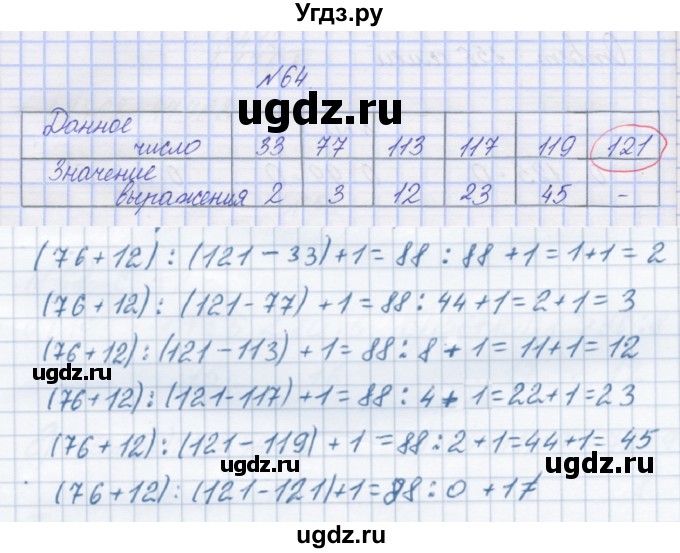 Угдз.ру
№64
ugdz.ru
Данное число 33 77 113 117 119 121
Значение выражения 2 3 12 23 45 -
(76+12) : (121-33)+1 = 88 : 88 +1 = 1+1 = 2
(76+12) : (121-77) +1 = 88 : 44+1 = 2+1 = 3
(76+12) : (121-113) + 1 = 88 : 8 + 1 = 11+1 = 12
ugdz.ru
(76+12) : (121-117) +1 = 88 : 4 + 1 = 22+1 = 23
(76+12) : (121-119) + 1 = 88 : 2 +1 = 44+1 = 45
ugdz.ru
ugdz.ru
(76+12) : (121-121)+1 = 88 : 0 +1
ugdz.ru